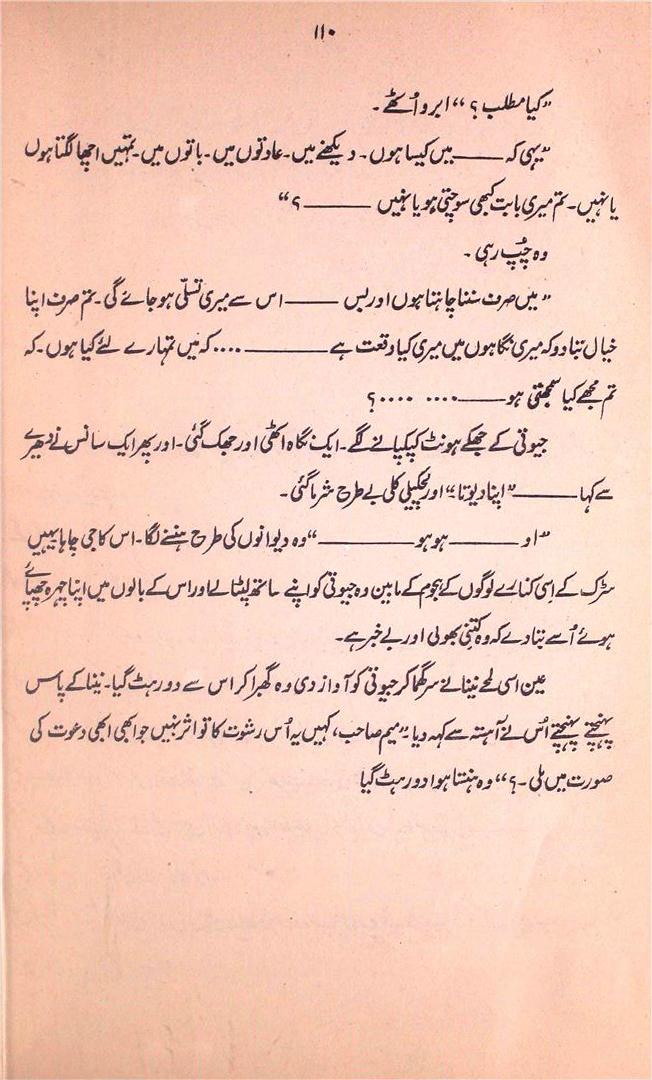 ۱۱۰
”کیا مطلب؟“ ابرو اُٹھے۔
”یہی کہ ——— میں کیسا ہوں۔ دیکھنے میں۔ عادتوں میں۔ باتوں میں۔ تمہیں اچھا لگتا ہوں
یا نہیں۔ تم میری بابت کبھی سوچتی ہو یا نہیں ——— ؟“
وہ چُپ رہی۔
”میں صرف سننا چاہتا ہوں اور بس ——— اس سے میری تسلّی ہو جائے گی۔ تم صرف اپنا
خیال بتا دو کہ میری نگاہوں میں میری کیا وقعت ہے ——— .... کہ میں تمہارے لئے کیا ہوں۔ کہ
تم مجھے کیا سمجھتی ہو ——— .... .... ؟
جیوتی کے جھکے ہونٹ کپکپانے لگے۔ ایک نگاہ اٹھی اور جھک گئی۔ اور پھر ایک سانس نے دھیرے
سے کہا ——— ”اپنا دیوتا“ اور لچکیلی کلی بے طرح شرما گئی۔
”او ——— ہو ہو ——— “ وہ دیوانوں کی طرح ہنسنے لگا۔ اس کا جی چاہا یہیں
سڑک کے اِسی کنارے لوگوں کے ہجوم کے مابین وہ جیوتی کو اپنے ساتھ لپٹا لے اور اس کے بالوں میں اپنا چہرہ چھپائے
ہوئے اُسے بتا دے کہ وہ کتنی بھولی اور بے خبر ہے۔
عین اسی لمحے نینا نے سر گھما کر جیوتی کو آواز دی وہ گھبرا کر اس سے دور ہٹ گیا۔ نینا کے پاس
پہنچتے پہنچتے اُس نے آہستہ سے کہہ دیا ”میم صاحب، کہیں یہ اُس رشوت کا تو اثر نہیں جو ابھی ابھی دعوت کی
صورت میں ملی۔؟“ وہ ہنستا ہوا دور ہٹ گیا